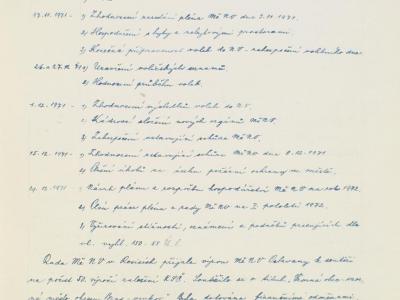 17.11.1971 - 1) Zhodnocení zasedání pléna MěNV dne 9.11.1971.
2) Hospodaření s byty a nebytovými prostorami
3) Konečná připravenost voleb do NV - zabezpečení volebního dne
26. a 27.11.71 1) Uzavření voličských seznamů.
2) Hodnocení průběhu voleb.
1.12.1971 - 1) Zhodnocení výsledků voleb do NV.
2) Kádrové složení nových orgánů MěNV
3) Zabezpečení ustavující schůze MěNV.
15.12.1971 - 1) Zhodnocení ustavující schůze MěNV dne 8.12.1971
2) Plnění úkolů na úseku požární ochrany ve městě.
29.12.1971 - 1) Návrh plánu a rozpočtu hospodářství MěNV na rok 1972.
2) Plán práce pléna a rady MěNV na I. pololetí 1972.
3) Vyřizování stížností, oznámení a podnětů pracujících dle
vl. vyhl. 150/58 Ú.l.
Rada MěNV v Rosicích přijala výzvu MěNV k soutěži
na počest 50. výročí založení KSČ. Soutěžilo se o titul "Vzorná obec okresu,